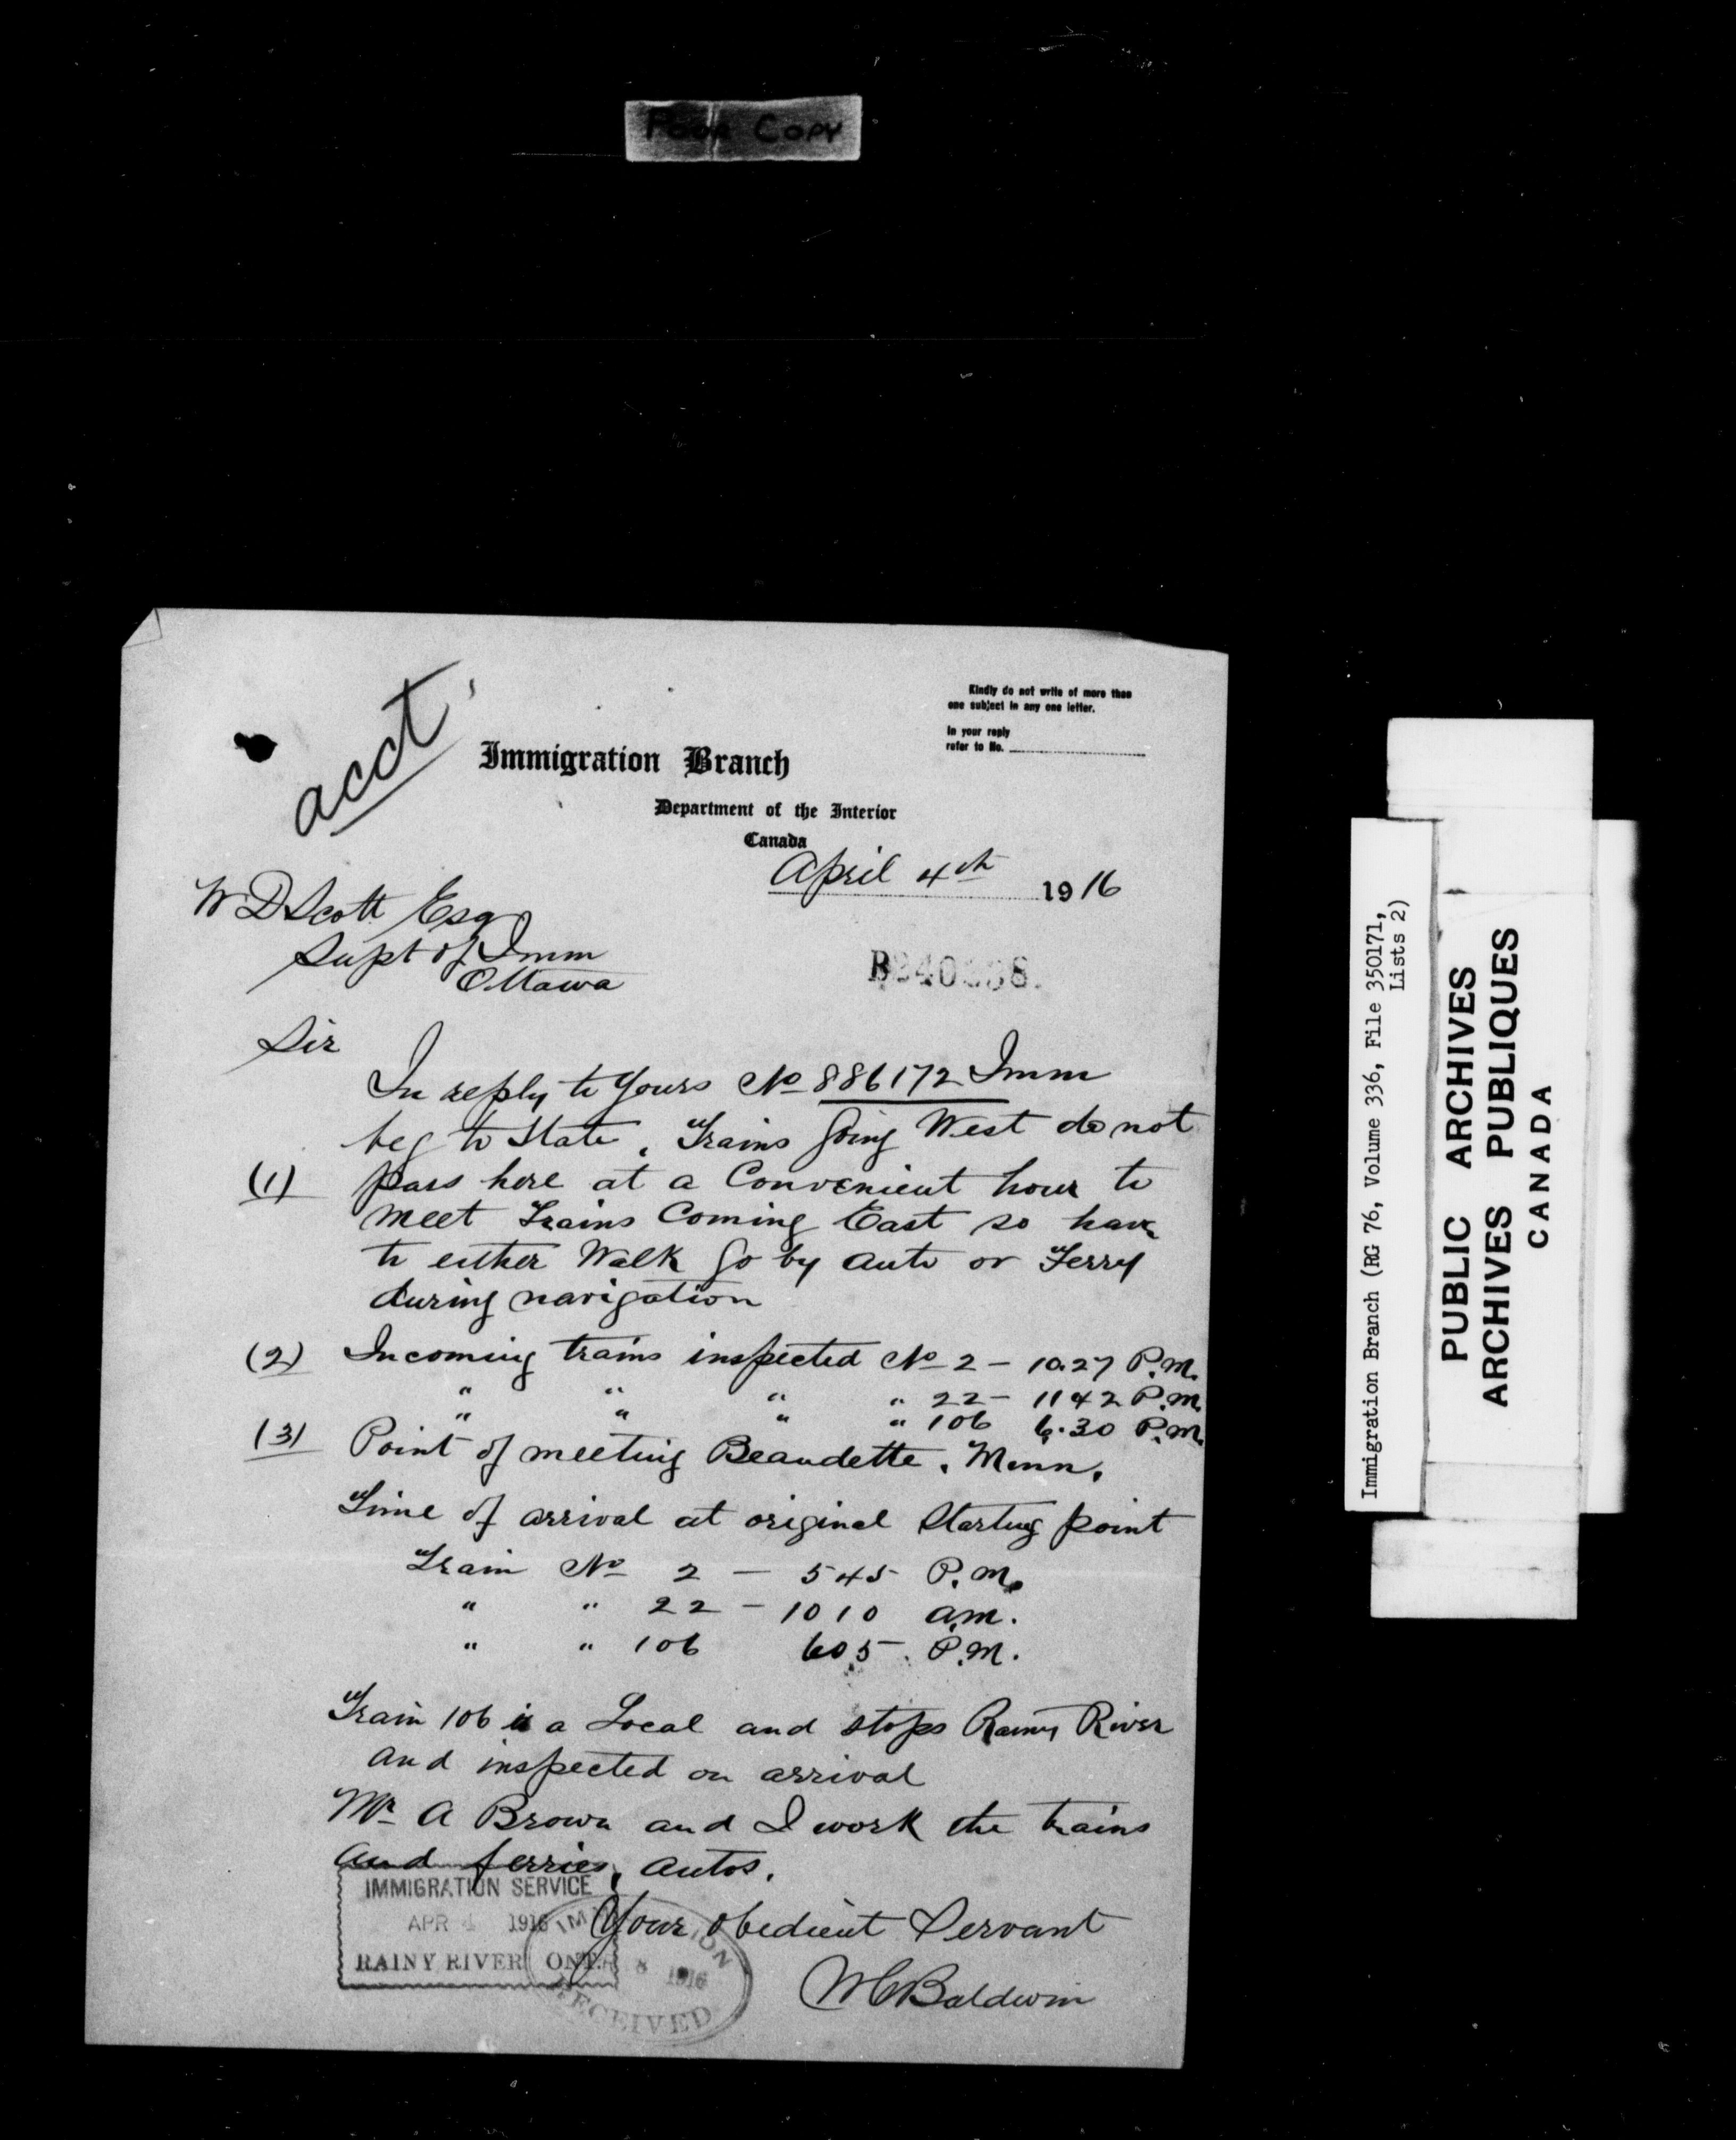 Poor Copy
acct
Kindly do not write of more than
one subject in any one letter.
In your reply
refer to No.
Immigration Branch
Department of the Interior
Canada
April 4th 1916
W D Scott Esq
Supt of Imm
Ottawa
Sir
In reply to yours No 886172 Imm
beg to State, Trains going West do not
(1) pass here at a Convenient hour to
meet Trains Coming East so have
to either Walk go by auto or Ferry
during navigation
(2) Incoming trains inspected No 2 - 10.27 P.M.
" " " " 22 - 1142 P.M.
" " " " 106 6.30 P.M.
(3) Point of meeting Beaudette, Minn,
Time of arrival at original Starting point
Train No 2 - 545 P.M.
" " 22 - 1010 am.
" " 106 605 P.M.
Train 106 is a Local and stops Rainy River
and inspected on arrival
Mr A Brown and I work the trains
and ferries, autos.
Your obedient Servant
W C Baldwin
IMMIGRATION SERVICE
APR 4 1916
RAINY RIVER ONT.
8 1916
RECEIVED
Immigration Branch (RG 76, Volume 336, File 350171,
Lists 2)
PUBLIC ARCHIVES
ARCHIVES PUBLIQUES
CANADA